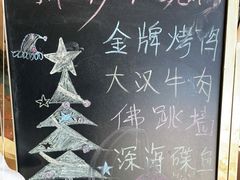 金牌烤鸡
大汉牛肉
佛跳墙
深海碟鱼